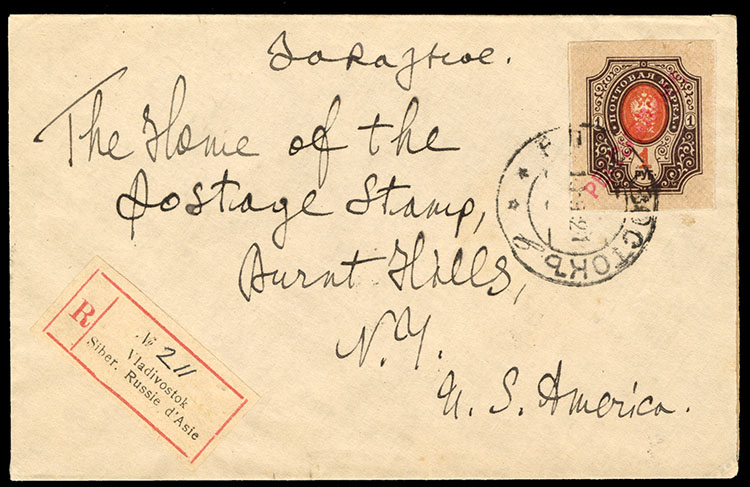 Заказное.
ПОЧТОВАЯ МАРКА
1 1
1
РУБ
The Home of the
Postage Stamp,
Burnt Hills,
N.Y.
U. S. America.
R
№ 211
Vladivostok
Siber. Russie d'Asie